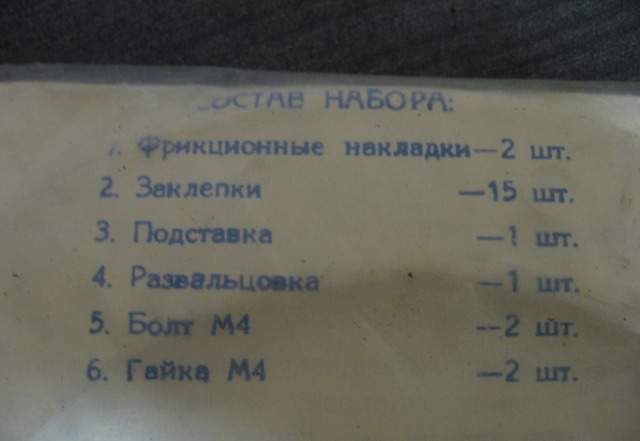 СОСТАВ НАБОРА:
1. Фрикционные накладки—2 шт.
2. Заклепки —15 шт.
3. Подставка —1 шт.
4. Развальцовка —1 шт.
5. Болт М4 —2 шт.
6. Гайка М4 —2 шт.